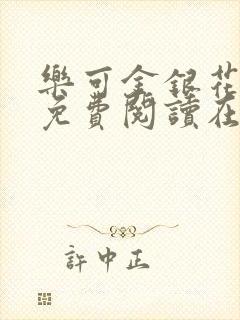 樂可金銀花
免費閱讀在
許中正